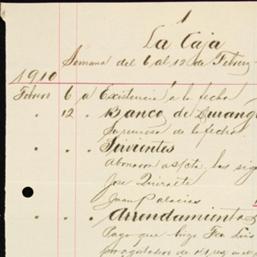 1
La Caja
Semana del 6 al 12 de Febrer
1910
Febrero 6 a Existencia a la fecha
" 12 " Banco de Durang
de la fecha
" " Sirvientes
Abonamos a s/cta. las sig
José
Juan Palacios
" " Arrendamient
Pago que hizo Fco